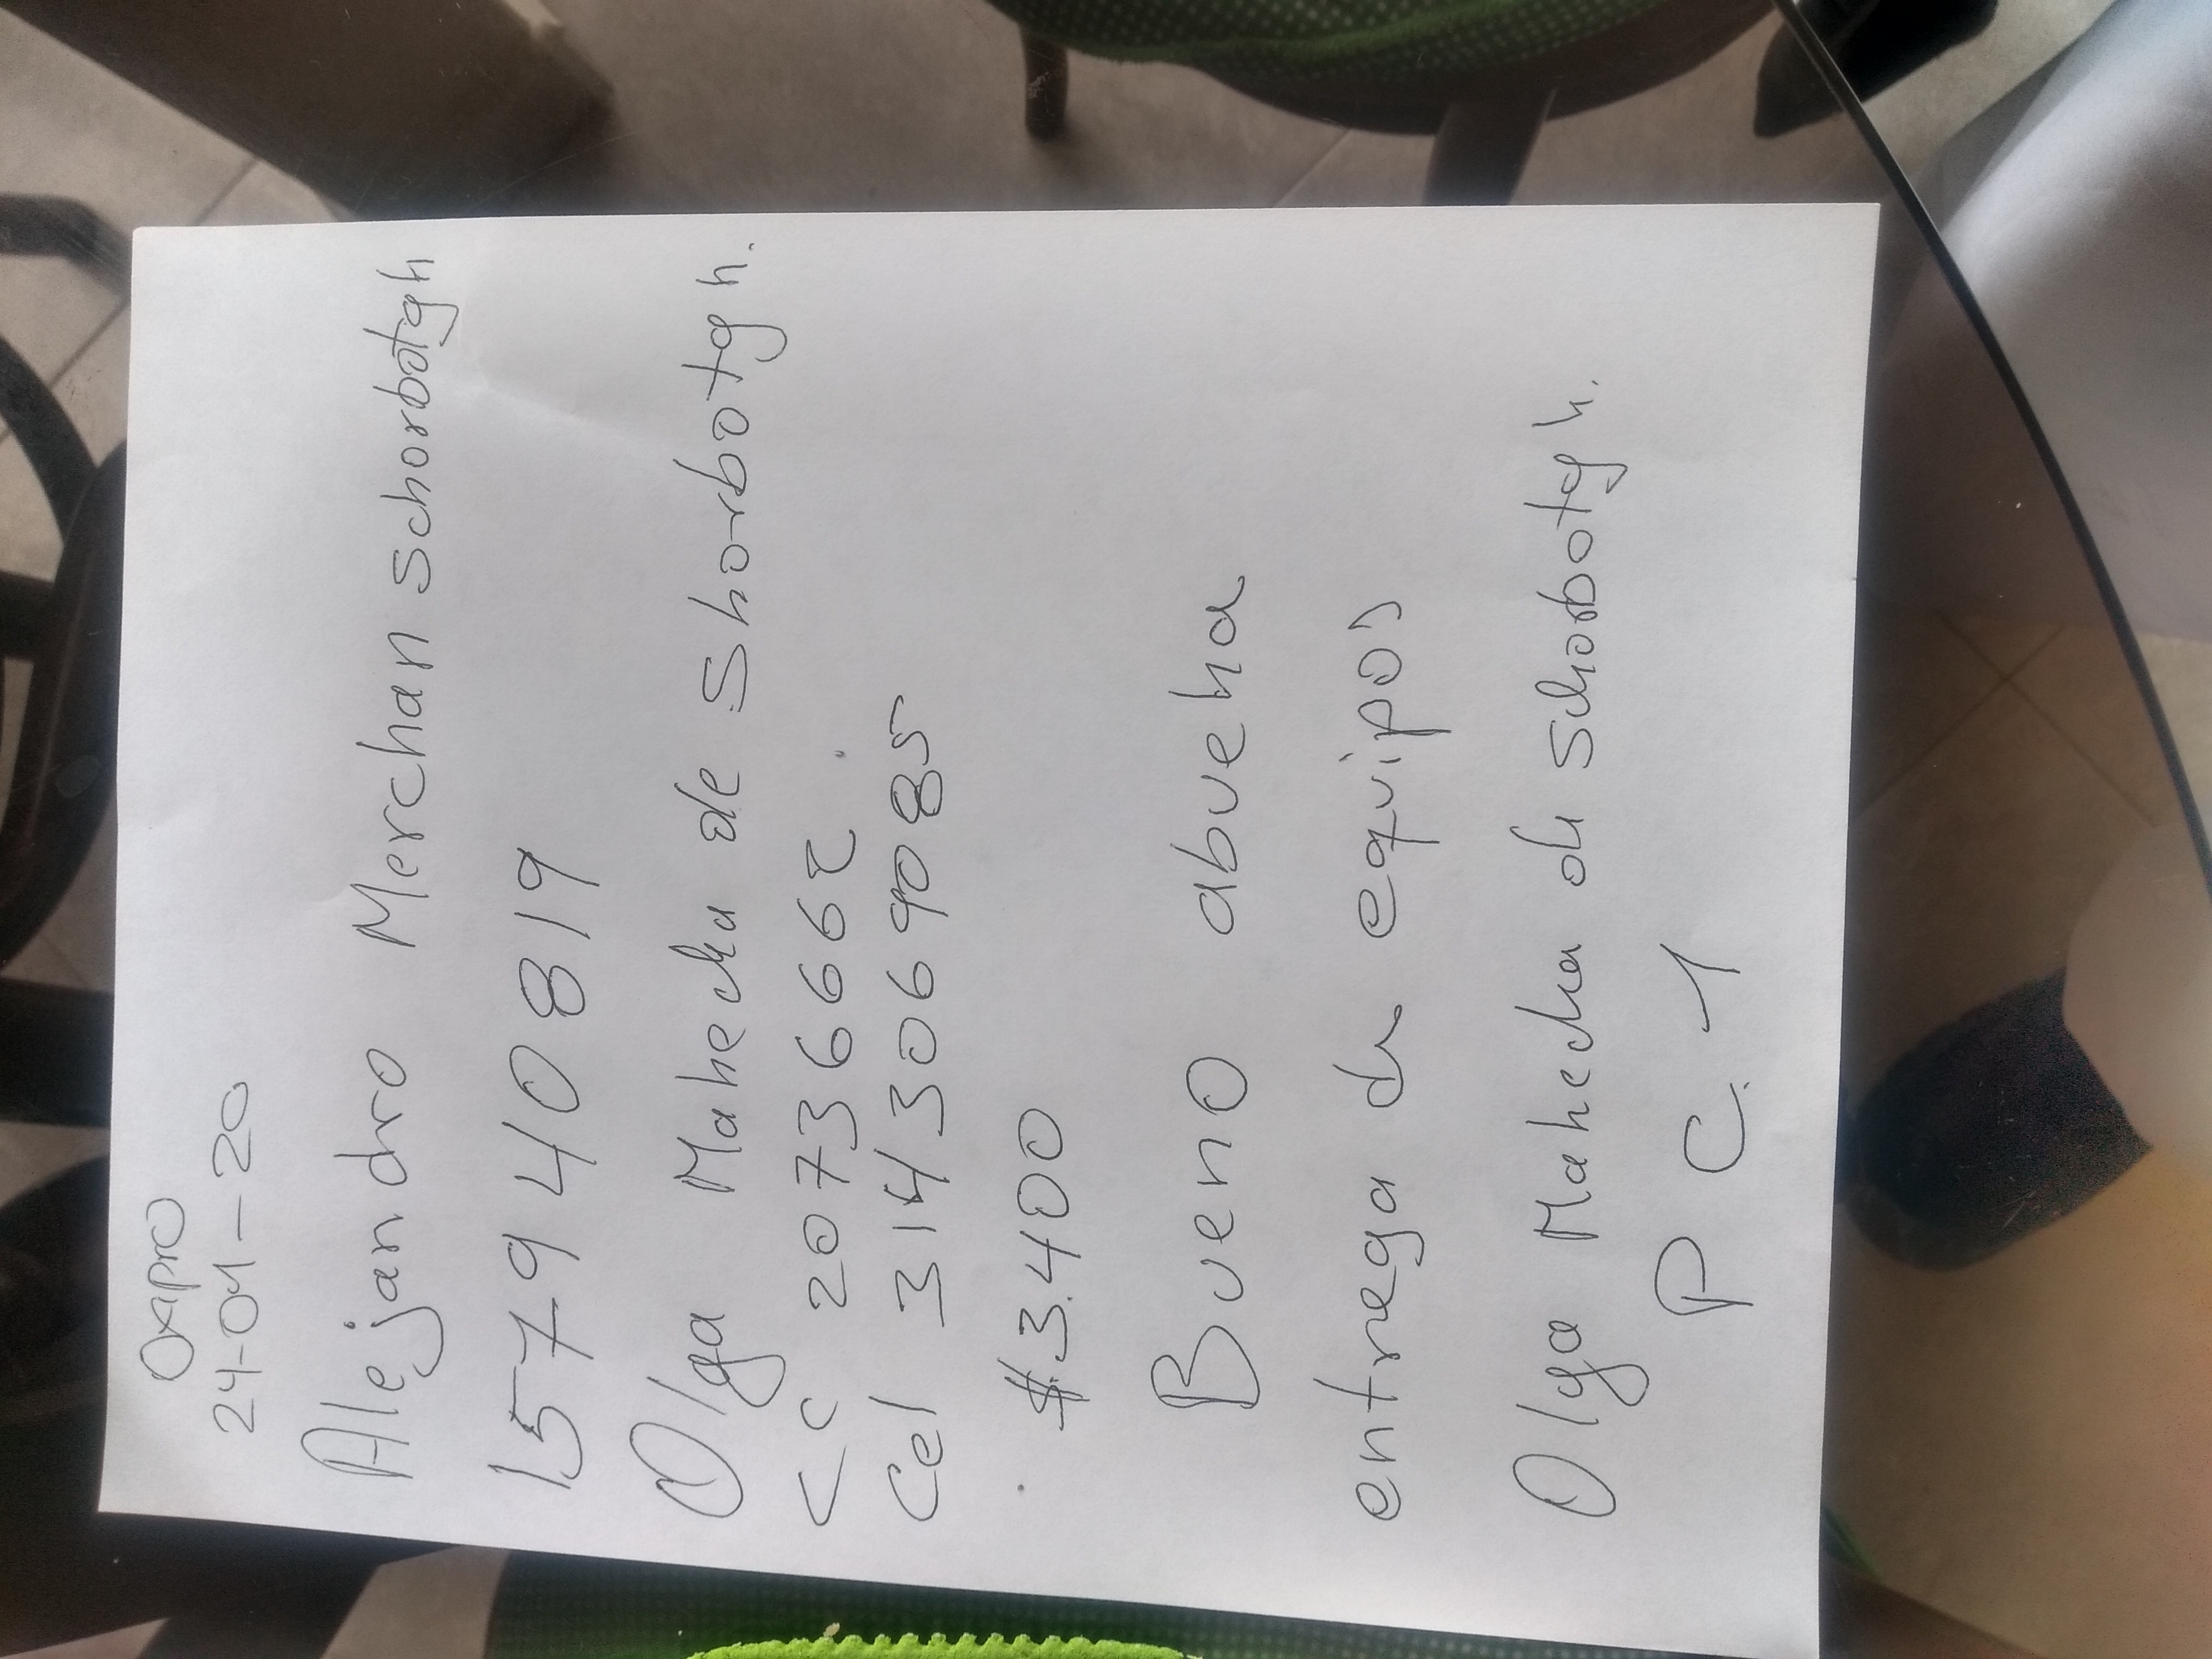 Oxipro
24-01-20
Alejandro Merchan schorbotgh
1579 40819
Olga Mahecha de Shorbotgh.
CC 20736662
Cel 3143069085
$.3.400
Bueno abueha
entrega de equipos
Olga Mahecha de schorbotgh.
P C. 1